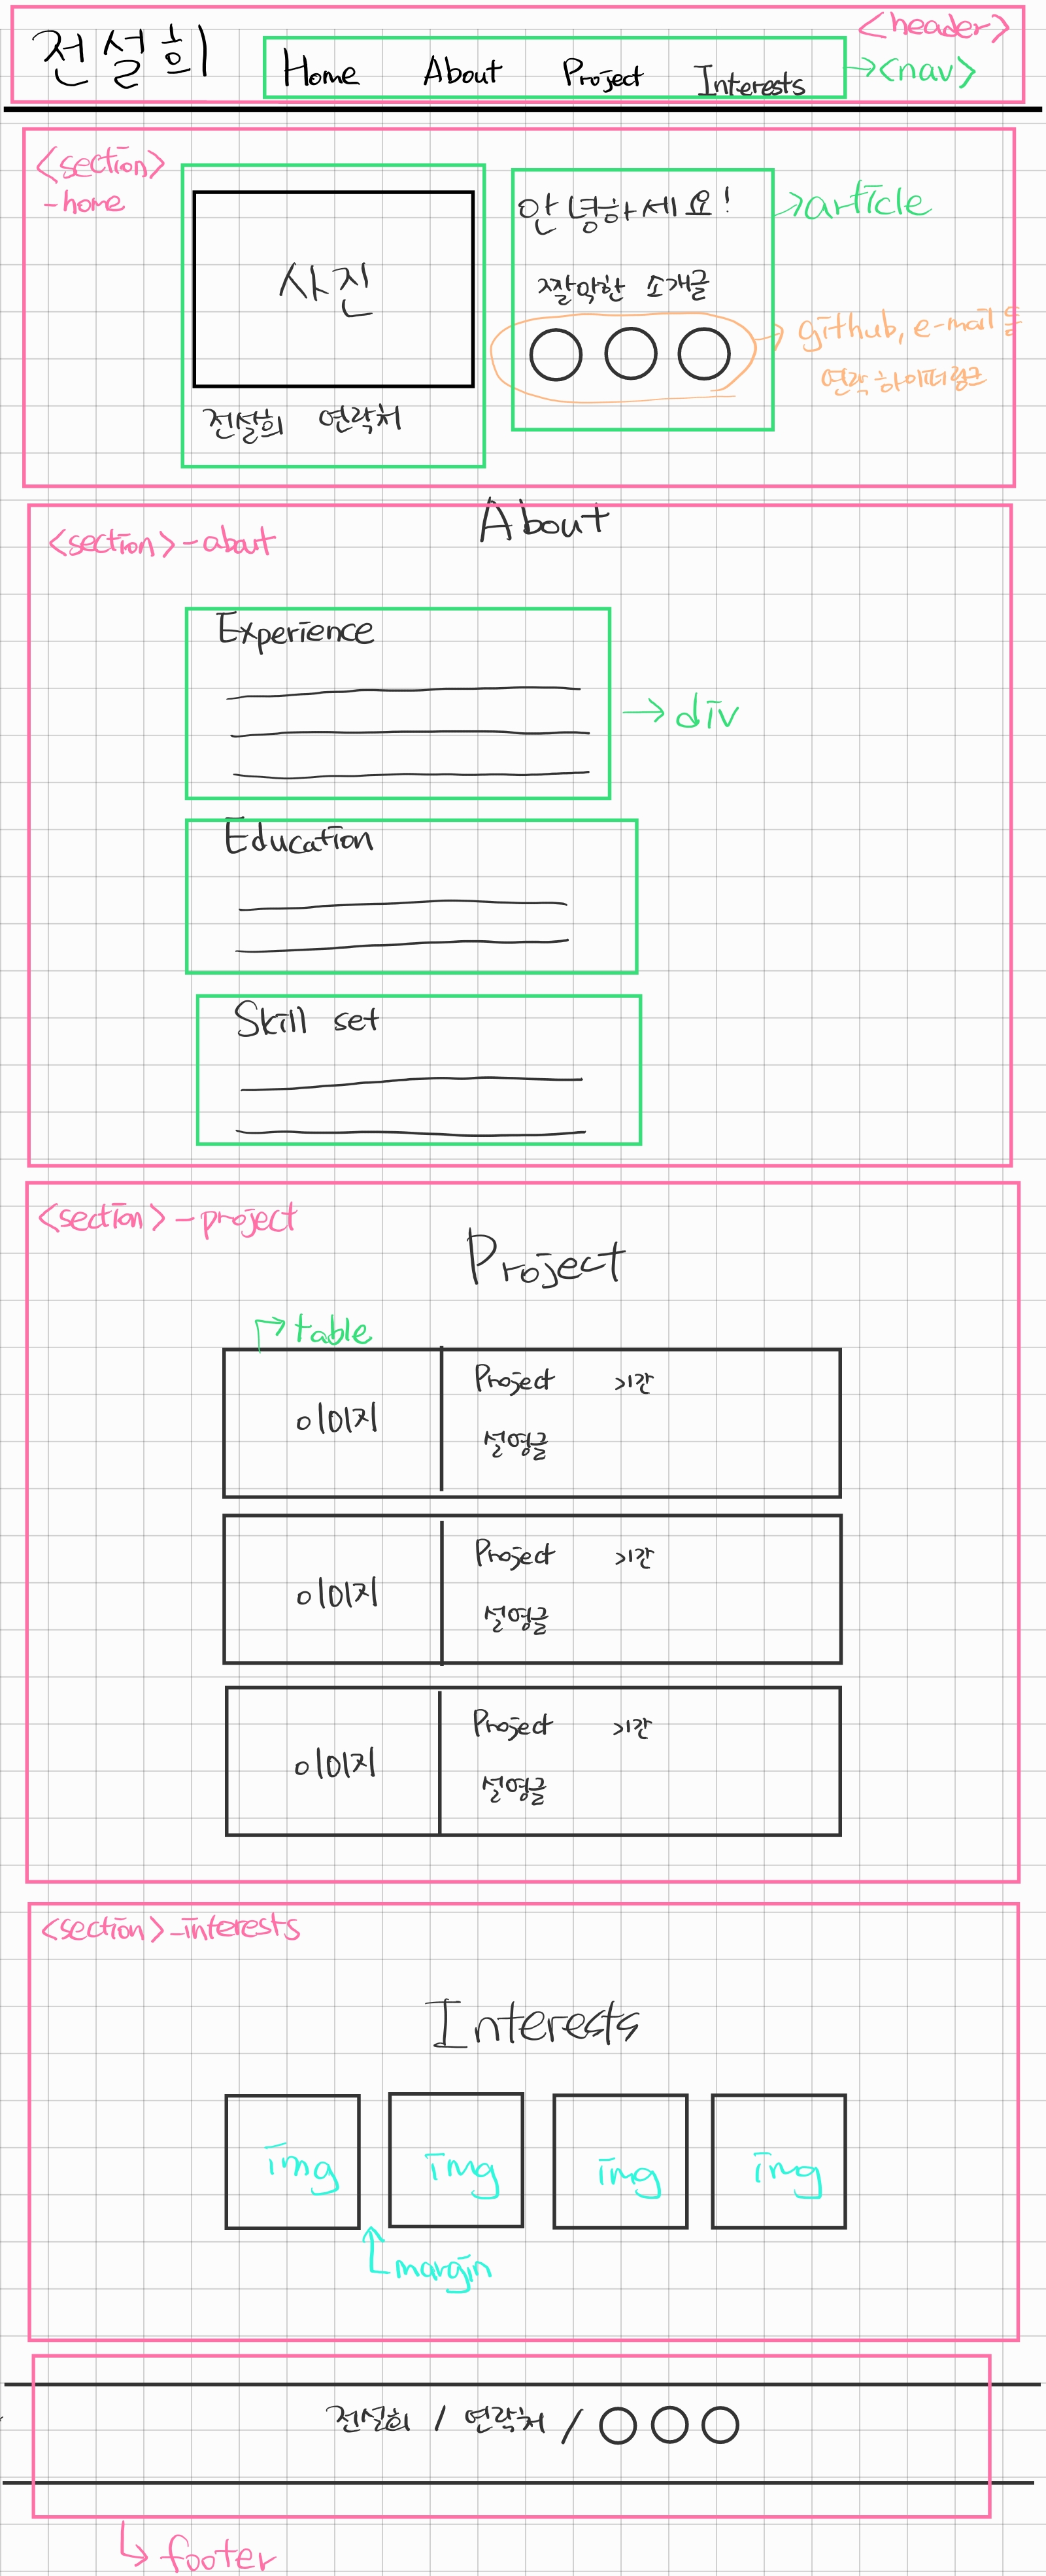 전설희 Home About Project Interests
<header>
→<nav>
<section>
-home
사진
전설희 연락처
안녕하세요!
짤막한 소개글
→article
→ github, e-mail 등
연락 하이퍼링크
About
<section>-about
Experience
→ div
Education
Skill set
<section>-project
Project
→table
이미지
Project 기간
설명글
이미지
Project 기간
설명글
이미지
Project 기간
설명글
<section>-interests
Interests
img img img img
margin
전설희 / 연락처 /
footer